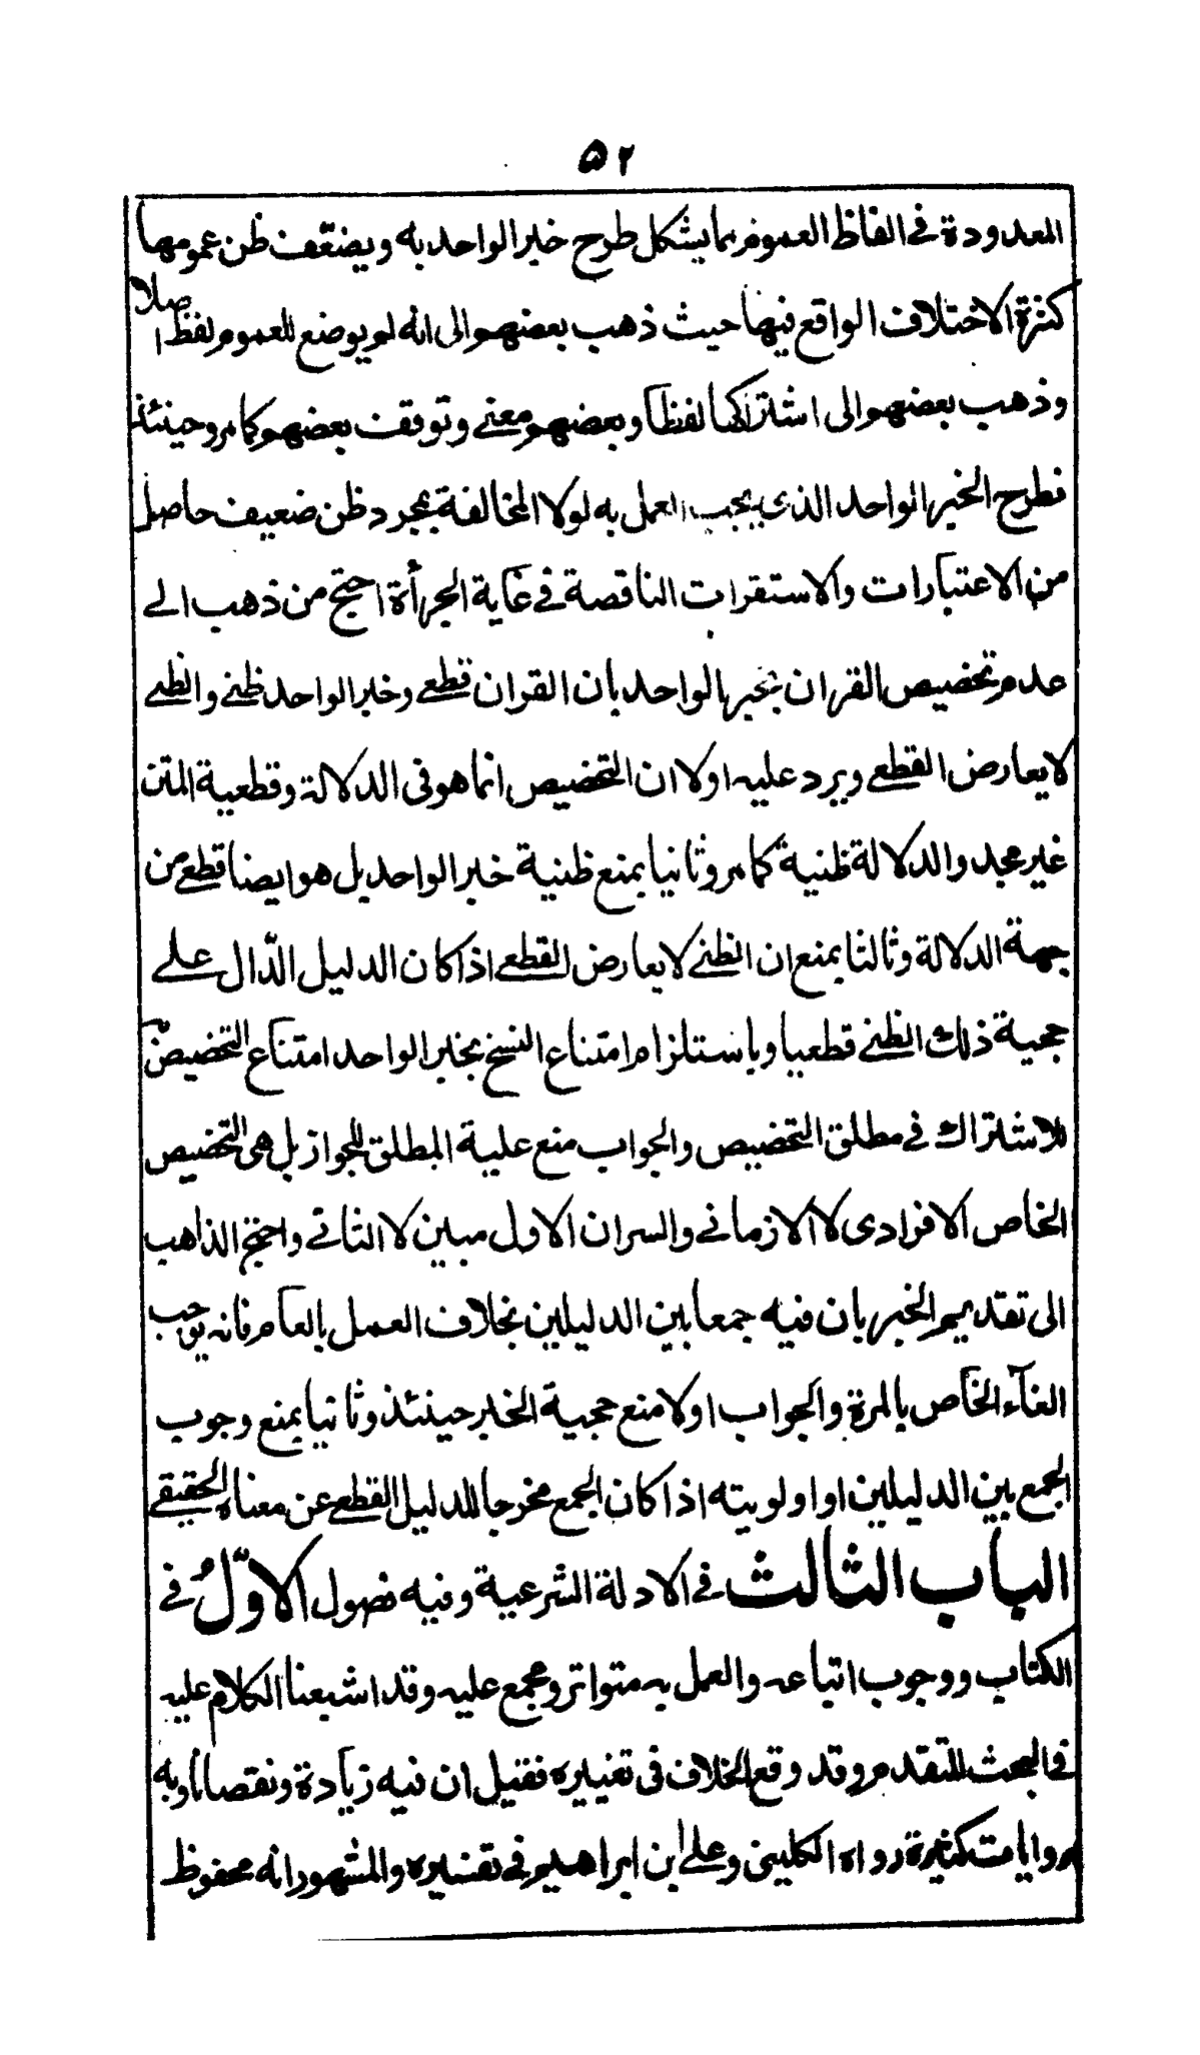 ۵۲
المعدودة في الفاظ العموم مما يشكل طرح خبر الواحد به ويضعّف ظن عمومها
كثرة الاختلاف الواقع فيها حيث ذهب بعضهم الى انه لم يوضع للعموم لفظ اصلا
وذهب بعضهم الى اشتراكها لفظا وبعضهم معنى وتوقف بعضهم كما مر وحينئذ
فطرح الخبر الواحد الذي يجب العمل به لولا المخالفة بمجرد ظن ضعيف حاصل
من الاعتبارات والاستقرات الناقصة في غاية الجرأة احتج من ذهب الى
عدم تخصيص القران بخبر الواحد بان القران قطعي وخبر الواحد ظني والظني
لا يعارض القطعي ويرد عليه اولا ان التخصيص انما هو في الدلالة وقطعية المتن
غير مجد والدلالة ظنية كما مر وثانيا بمنع ظنية خبر الواحد بل هو ايضا قطعي من
جهة الدلالة وثالثا بمنع ان الظني لا يعارض القطعي اذا كان الدليل الدّال على
حجية ذلك الظني قطعيا وباستلزام امتناع النسخ بخبر الواحد امتناع التخصيص
للاشتراك في مطلق التخصيص والجواب منع علية المطلق للجواز بل هي التخصيص
الخاص الافرادى لا الازماني والسران الاول مبين لا الثاني واحتج الذاهب
الى تقديم الخبر بان فيه جمعا بين الدليلين بخلاف العمل بالعام فانه يوجب
الغآء الخاص بالمرة والجواب اولا منع حجية الخبر حينئذ وثانيا بمنع وجوب
الجمع بين الدليلين او اولويته اذا كان الجمع مخرجا للدليل القطعي عن معناه الحقيقي
الباب الثالث في الادلة الشرعية وفيه فصول الاوّلُ في
الكتاب ووجوب اتباعه والعمل به متواتر ومجمع عليه وقد اشبعنا الكلام عليه
في البحث المتقدم وقد وقع الخلاف في تغييره فقيل ان فيه زيادة ونقصانا وبه
روايات كثيرة رواه الكليني وعلي ابن ابراهيم في تفسيره والمشهور انه محفوظ